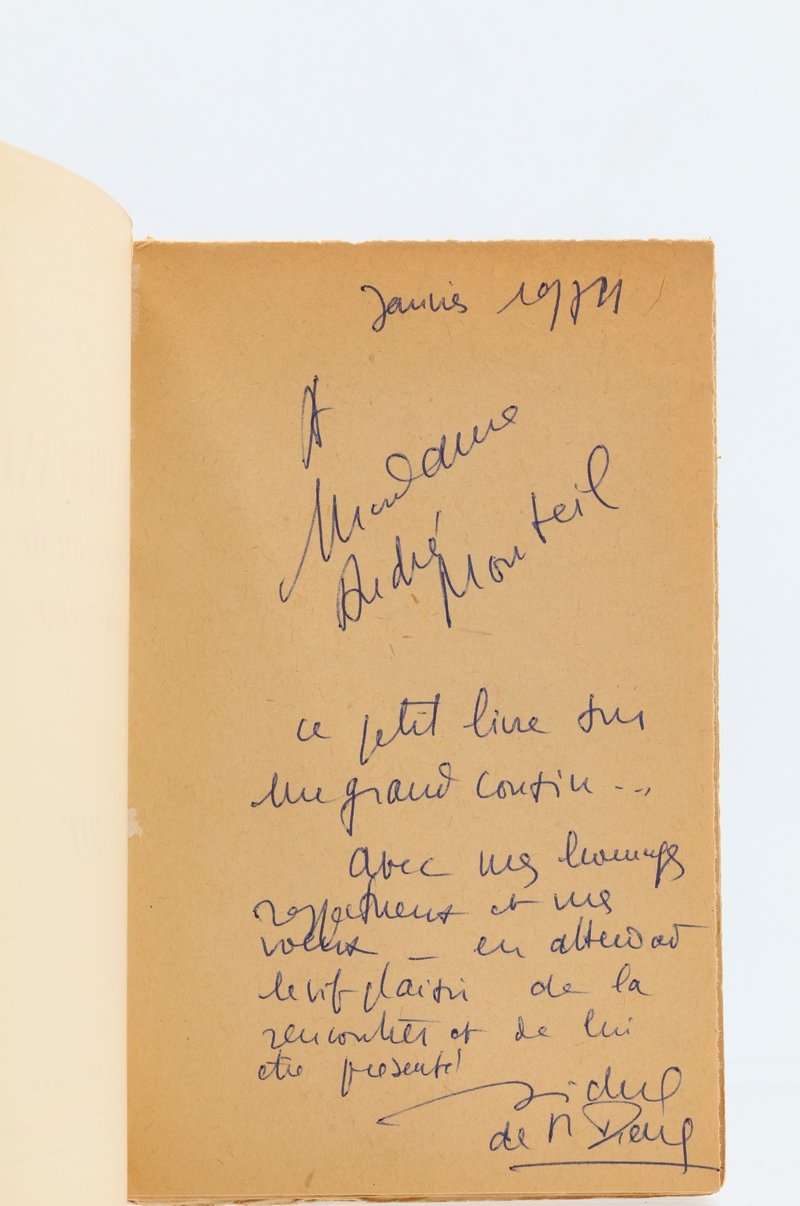 Janvier 1974
A
Madame
André Monteil
ce petit livre sur
un grand cousin...
avec mes hommages
respectueux et mes
voeux — en attendant
le vif plaisir de la
rencontrer et de lui
être présenté
Michel
de